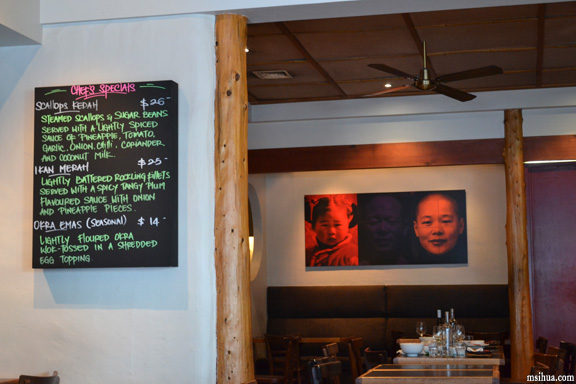 CHEF'S SPECIALS
SCALLOPS KEDAH $26-
STEAMED SCALLOPS & SUGAR BEANS
SERVED WITH A LIGHTLY SPICED
SAUCE OF PINEAPPLE, TOMATO,
GARLIC, ONION, CHILI, CORIANDER
AND COCONUT MILK.
IKAN MERAH $25-
LIGHTLY BATTERED ROCKLING FILLETS
SERVED WITH A SPICY TANGY PLUM
FLAVOURED SAUCE WITH ONION
AND PINEAPPLE PIECES.
OKRA EMAS (SEASONAL) $14-
LIGHTLY FLOURED OKRA
WOK-TOSSED IN A SHREDDED
EGG TOPPING.
msihua.com